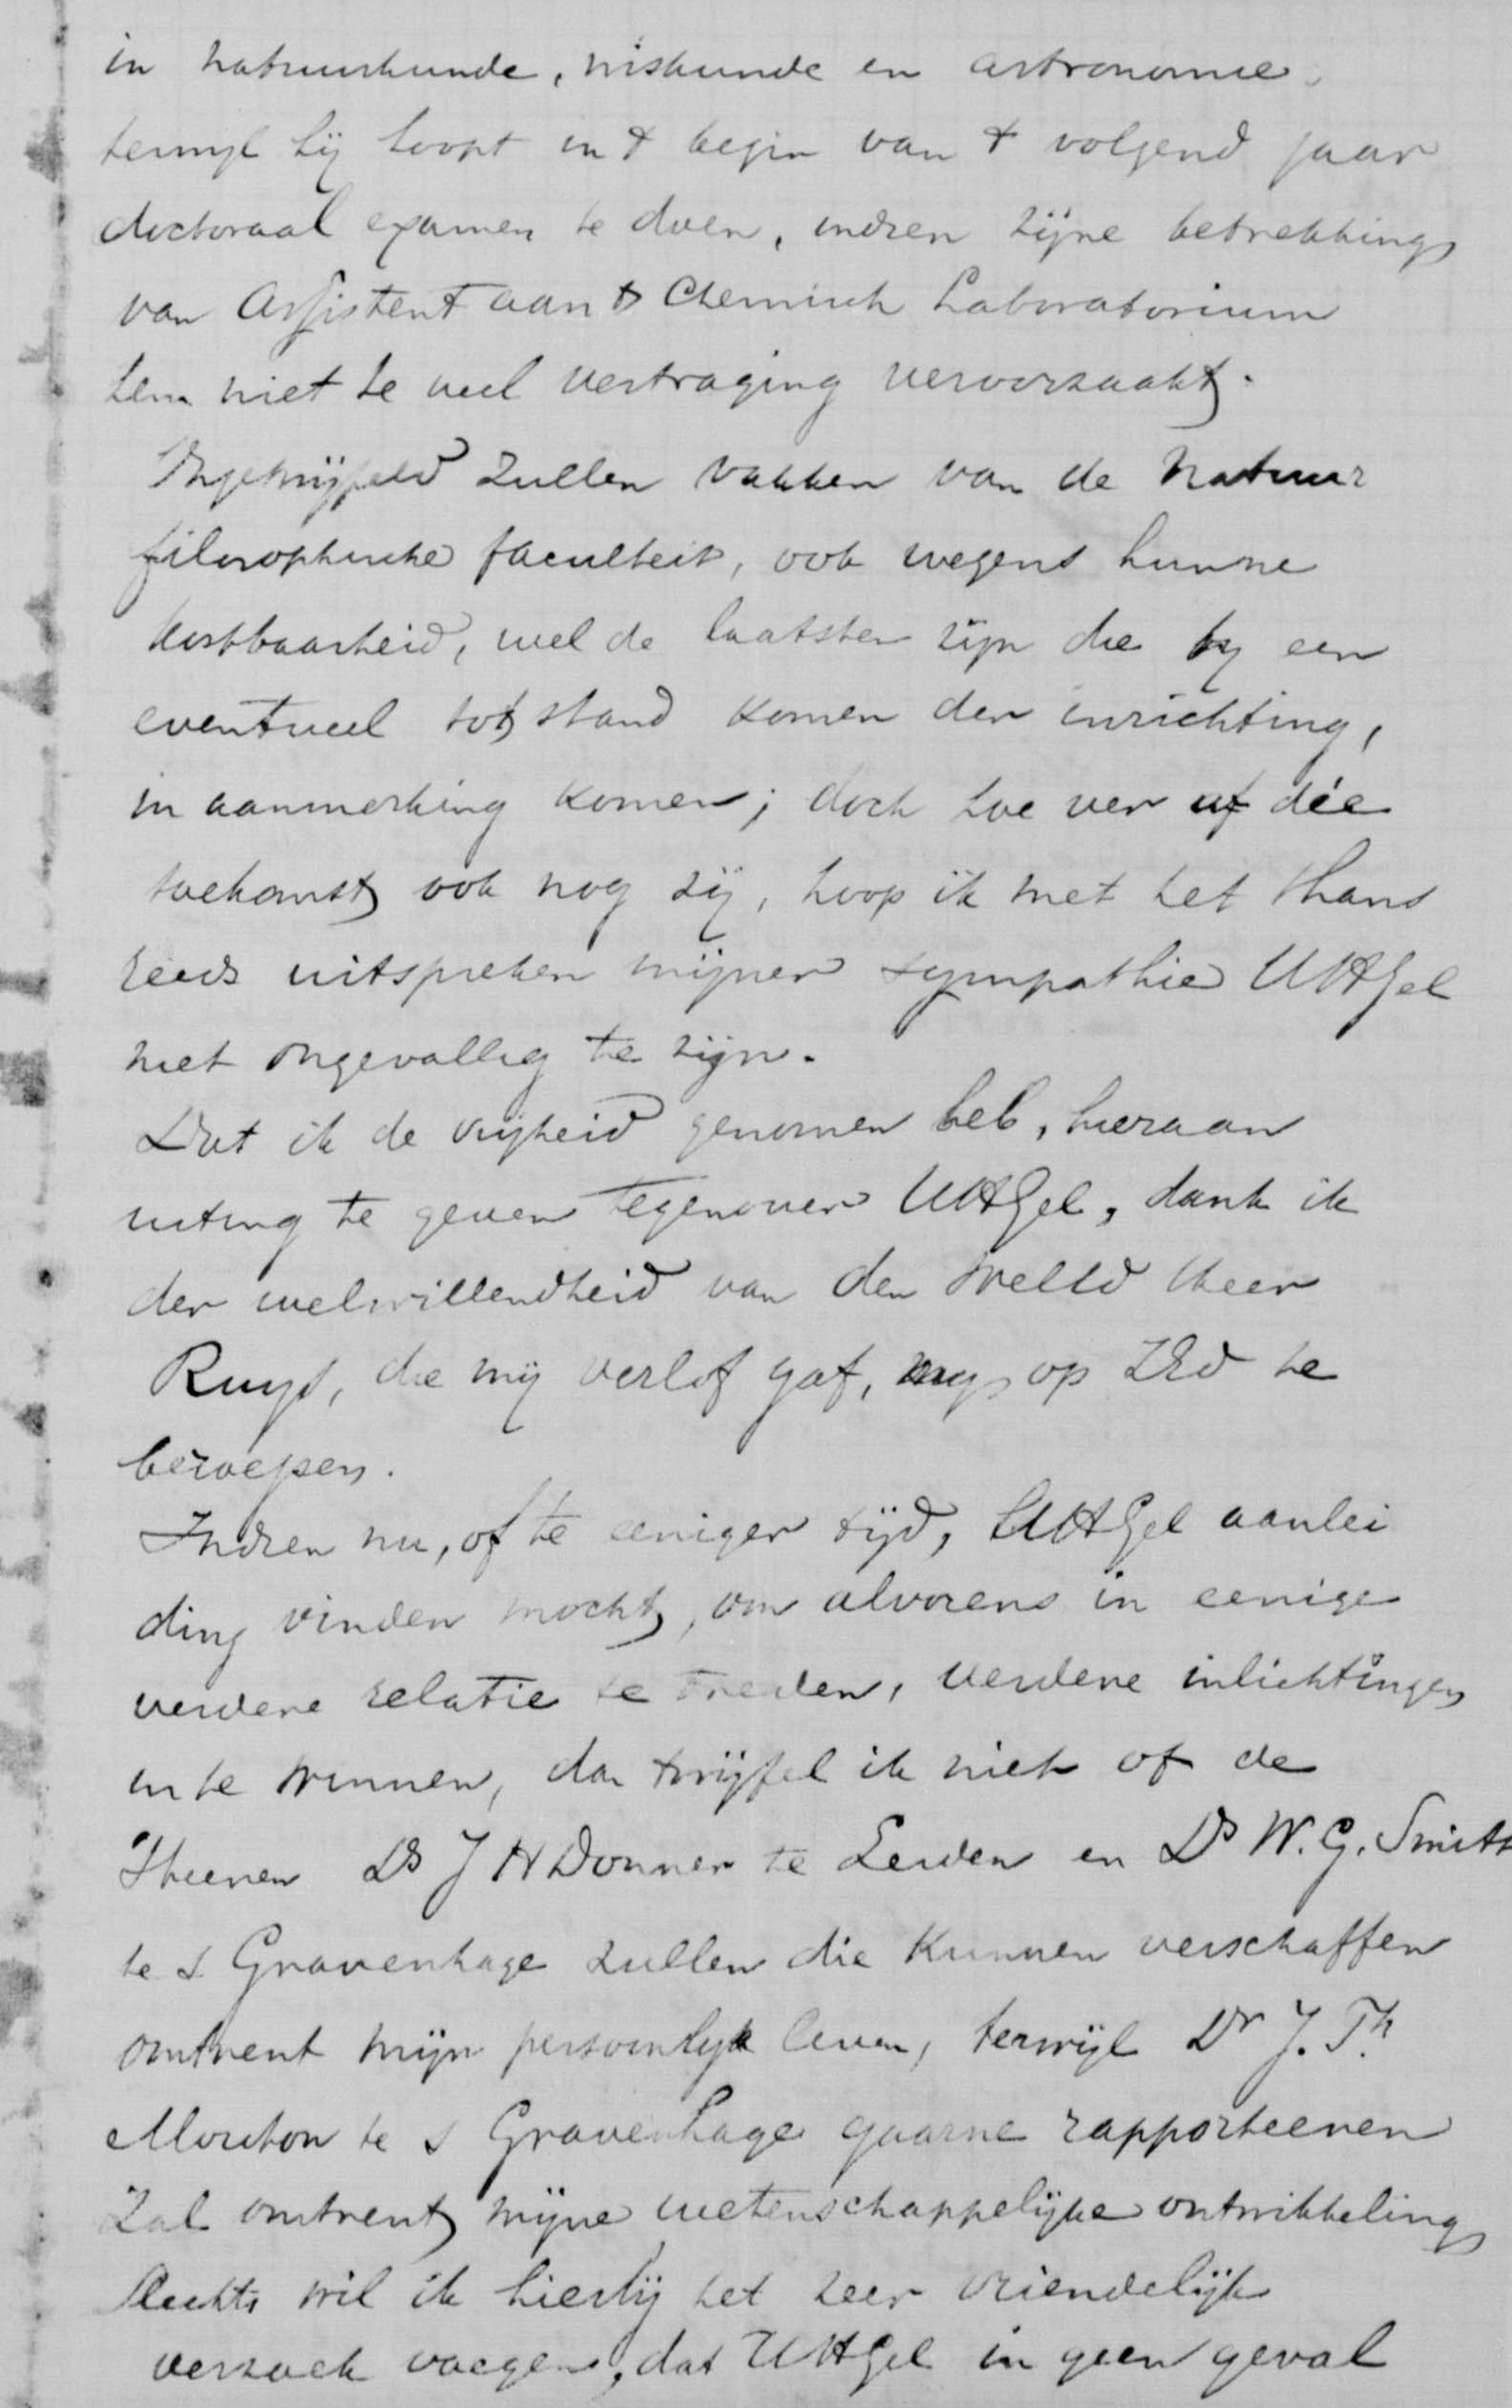 in natuurkunde, wiskunde en astronomie,
terwyl hij hoopt in 't begin van 't volgend jaar
doctoraal examen te doen, indien zijne betrekking
van Assistent aan 't Chemisch Laboratorium
hem niet te veel vertraging veroorzaakt.
Ongetwijfeld zullen vakken van de Natuur
filosophische faculteit, ook wegens hunne
kostbaarheid, wel de laatsten zijn die by een
eventueel tot stand komen der inrichting,
in aanmerking komen; doch hoe ver af die
toekomst ook nog zij, hoop ik met het thans
reeds uitspreken mijner sympathie UHGel
niet ongevallig te zijn.
Dat ik de vrijheid genomen heb, hieraan
uiting te geven tegenover UHGel, dank ik
der welwillendheid van den WelEd Heer
Ruys, die mij verlof gaf, my op ZEd te
beroepen.
Indien nu, of te eeniger tijd, UHGel aanlei
ding vinden mocht, om alvorens in eenige
verdere relatie te treden, verdere inlichtingen
in te winnen, dan twijfel ik niet of de
Heeren Ds J H Donner te Leiden en Ds W. G. Smitt
te s Gravenhage zullen die kunnen verschaffen
omtrent mijn persoonlyk leven, terwijl Dr J. Th.
Mouton te s Gravenhage gaarne rapporteeren
zal omtrent mijne wetenschappelijke ontwikkeling
Slechts wil ik hierbij het zeer vriendelijk
verzoek voegen, dat UHGel in geen geval